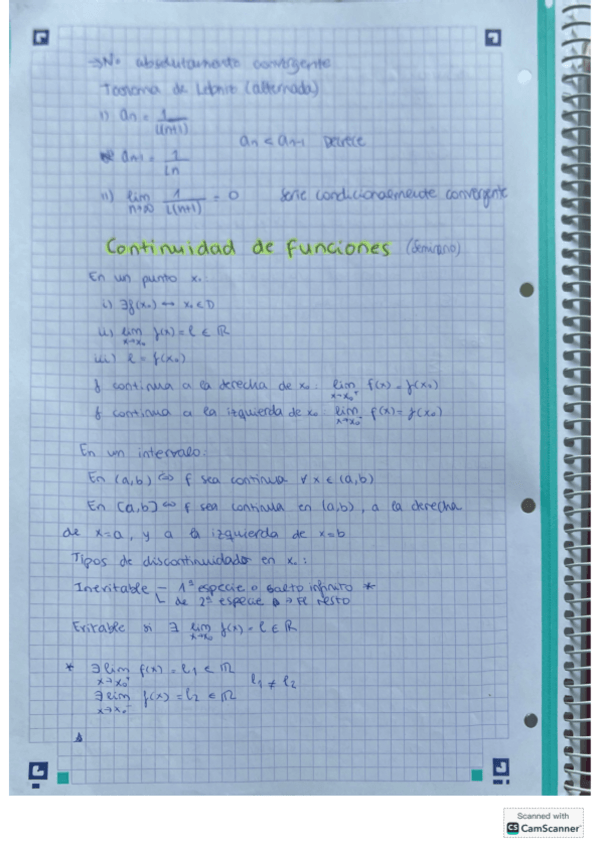 → No absolutamente convergente
Teorema de Leibniz (alternada)
i) an = 1/L(n+1)
an < an-1 Decrece
an-1 = 1/Ln
ii) lim n→∞ 1/L(n+1) = 0 Serie condicionalmente convergente
Continuidad de funciones (Seminario)
En un punto x₀:
i) ∃f(x₀) ↔ x₀ ∈ D
ii) lim x→x₀ f(x) = l ∈ ℝ
iii) l = f(x₀)
f continua a la derecha de x₀: lim x→x₀⁺ f(x) = f(x₀)
f continua a la izquierda de x₀: lim x→x₀⁻ f(x) = f(x₀)
En un intervalo:
En (a,b) ⇔ f sea continua ∀ x ∈ (a,b)
En [a,b] ⇔ f sea continua en (a,b), a la derecha
de x=a, y a la izquierda de x=b
Tipos de discontinuidades en x₀:
Inevitable - 1ª especie o salto infinito *
de 2ª especie → El resto
Evitable si ∃ lim x→x₀ f(x) = l ∈ ℝ
* ∃ lim x→x₀⁺ f(x) = l₁ ∈ ℝ
l₁ ≠ l₂
∃ lim x→x₀⁻ f(x) = l₂ ∈ ℝ
Scanned with
CS CamScanner